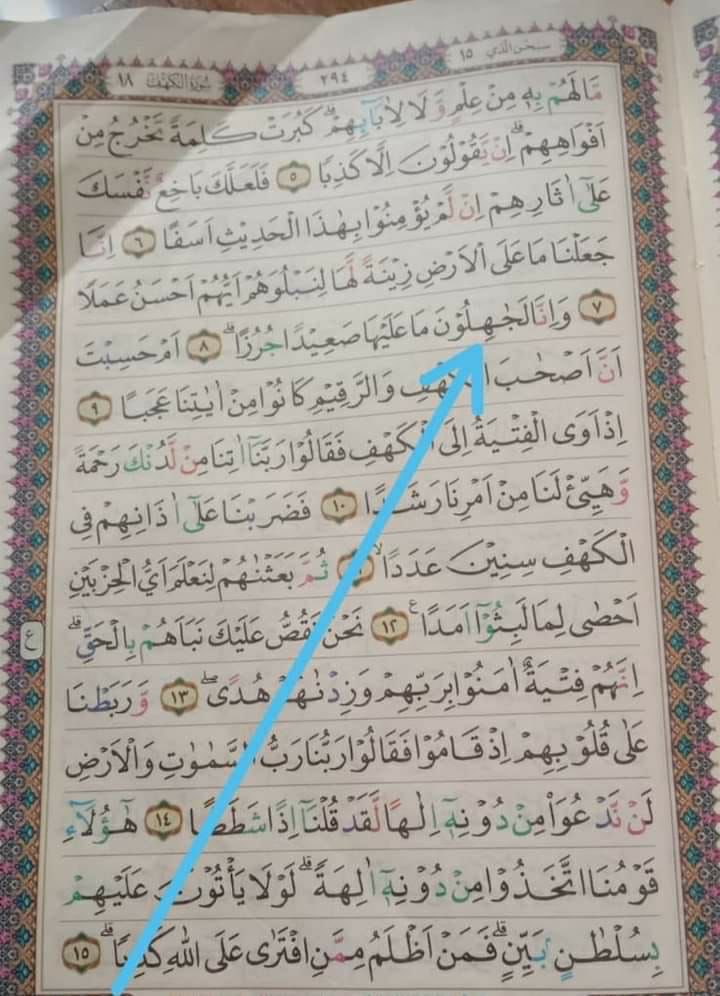 سبحن الذي ١٥
٢٩٤
سورة الكهف ١٨
مَّا لَهُمْ بِهٖ مِنْ عِلْمٍ وَّ لَا لِاٰبَآىِٕهِمْ ۗ كَبُرَتْ كَلِمَةً تَخْرُجُ مِنْ
اَفْوَاهِهِمْ ۗ اِنْ يَّقُوْلُوْنَ اِلَّا كَذِبًا ٥ فَلَعَلَّكَ بَاخِعٌ نَّفْسَكَ
عَلٰٓى اٰثَارِهِمْ اِنْ لَّمْ يُؤْمِنُوْا بِهٰذَا الْحَدِيْثِ اَسَفًا ٦ اِنَّا
جَعَلْنَا مَا عَلَى الْاَرْضِ زِيْنَةً لَّهَا لِنَبْلُوَهُمْ اَيُّهُمْ اَحْسَنُ عَمَلًا
٧ وَاِنَّا لَجٰهِلُوْنَ مَا عَلَيْهَا صَعِيْدًا جُرُزًا ۗ ٨ اَمْ حَسِبْتَ
اَنَّ اَصْحٰبَ الْكَهْفِ وَالرَّقِيْمِ كَانُوْا مِنْ اٰيٰتِنَا عَجَبًا ٩
اِذْ اَوَى الْفِتْيَةُ اِلَى الْكَهْفِ فَقَالُوْا رَبَّنَآ اٰتِنَا مِنْ لَّدُنْكَ رَحْمَةً
وَّهَيِّئْ لَنَا مِنْ اَمْرِنَا رَشَدًا ١٠ فَضَرَبْنَا عَلٰٓى اٰذَانِهِمْ فِى
الْكَهْفِ سِنِيْنَ عَدَدًا ۙ ثُمَّ بَعَثْنٰهُمْ لِنَعْلَمَ اَيُّ الْحِزْبَيْنِ
اَحْصٰى لِمَا لَبِثُوْٓا اَمَدًا ࣖ ١٢ نَحْنُ نَقُصُّ عَلَيْكَ نَبَاَهُمْ بِالْحَقِّ ۗ
ع
اِنَّهُمْ فِتْيَةٌ اٰمَنُوْا بِرَبِّهِمْ وَزِدْنٰهُمْ هُدًى ۖ ١٣ وَّرَبَطْنَا
عَلٰى قُلُوْبِهِمْ اِذْ قَامُوْا فَقَالُوْا رَبُّنَا رَبُّ السَّمٰوٰتِ وَالْاَرْضِ
لَنْ نَّدْعُوَا۟ مِنْ دُوْنِهٖٓ اِلٰهًا لَّقَدْ قُلْنَآ اِذًا شَطَطًا ١٤ هٰٓؤُلَاۤءِ
قَوْمُنَا اتَّخَذُوْا مِنْ دُوْنِهٖٓ اٰلِهَةً ۗ لَوْلَا يَأْتُوْنَ عَلَيْهِمْ
بِسُلْطٰنٍ بَيِّنٍ ۗ فَمَنْ اَظْلَمُ مِمَّنِ افْتَرٰى عَلَى اللّٰهِ كَذِبًا ۗ ١٥